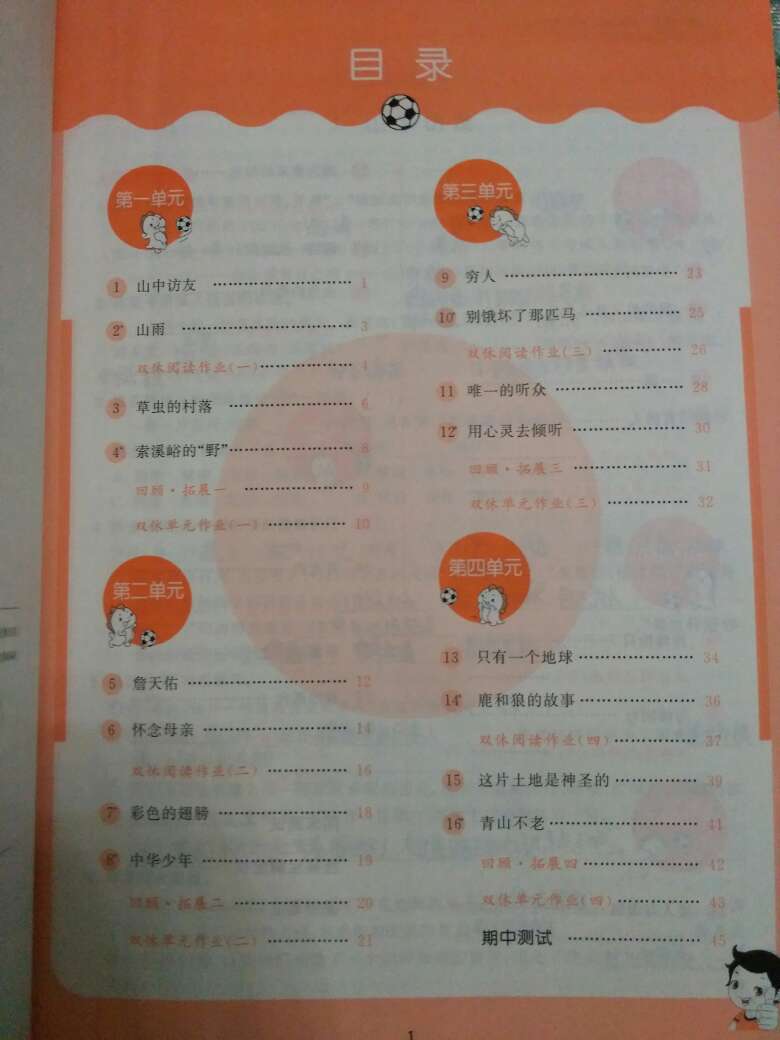 目 录
第一单元
1 山中访友 ………………………… 1
2* 山雨 ………………………… 3
双休阅读作业(一) ………………… 4
3 草虫的村落 ………………… 6
4* 索溪峪的“野” ………………… 8
回顾·拓展一 ………………… 9
双休单元作业(一) ………………… 10
第二单元
5 詹天佑 ………………………… 12
6 怀念母亲 ………………………… 14
双休阅读作业(二) ………………… 16
7* 彩色的翅膀 ………………………… 18
8* 中华少年 ………………………… 19
回顾·拓展二 ………………… 20
双休单元作业(二) ………………… 21
第三单元
9 穷人 ………………………… 23
10* 别饿坏了那匹马 ………………… 25
双休阅读作业(三) ………………… 26
11 唯一的听众 ………………… 28
12* 用心灵去倾听 ………………… 30
回顾·拓展三 ………………… 31
双休单元作业(三) ………………… 32
第四单元
13 只有一个地球 ………………… 34
14* 鹿和狼的故事 ………………… 36
双休阅读作业(四) ………………… 37
15 这片土地是神圣的 ………………… 39
16* 青山不老 ………………………… 41
回顾·拓展四 ………………… 42
双休单元作业(四) ………………… 43
期中测试 ………………… 45
1